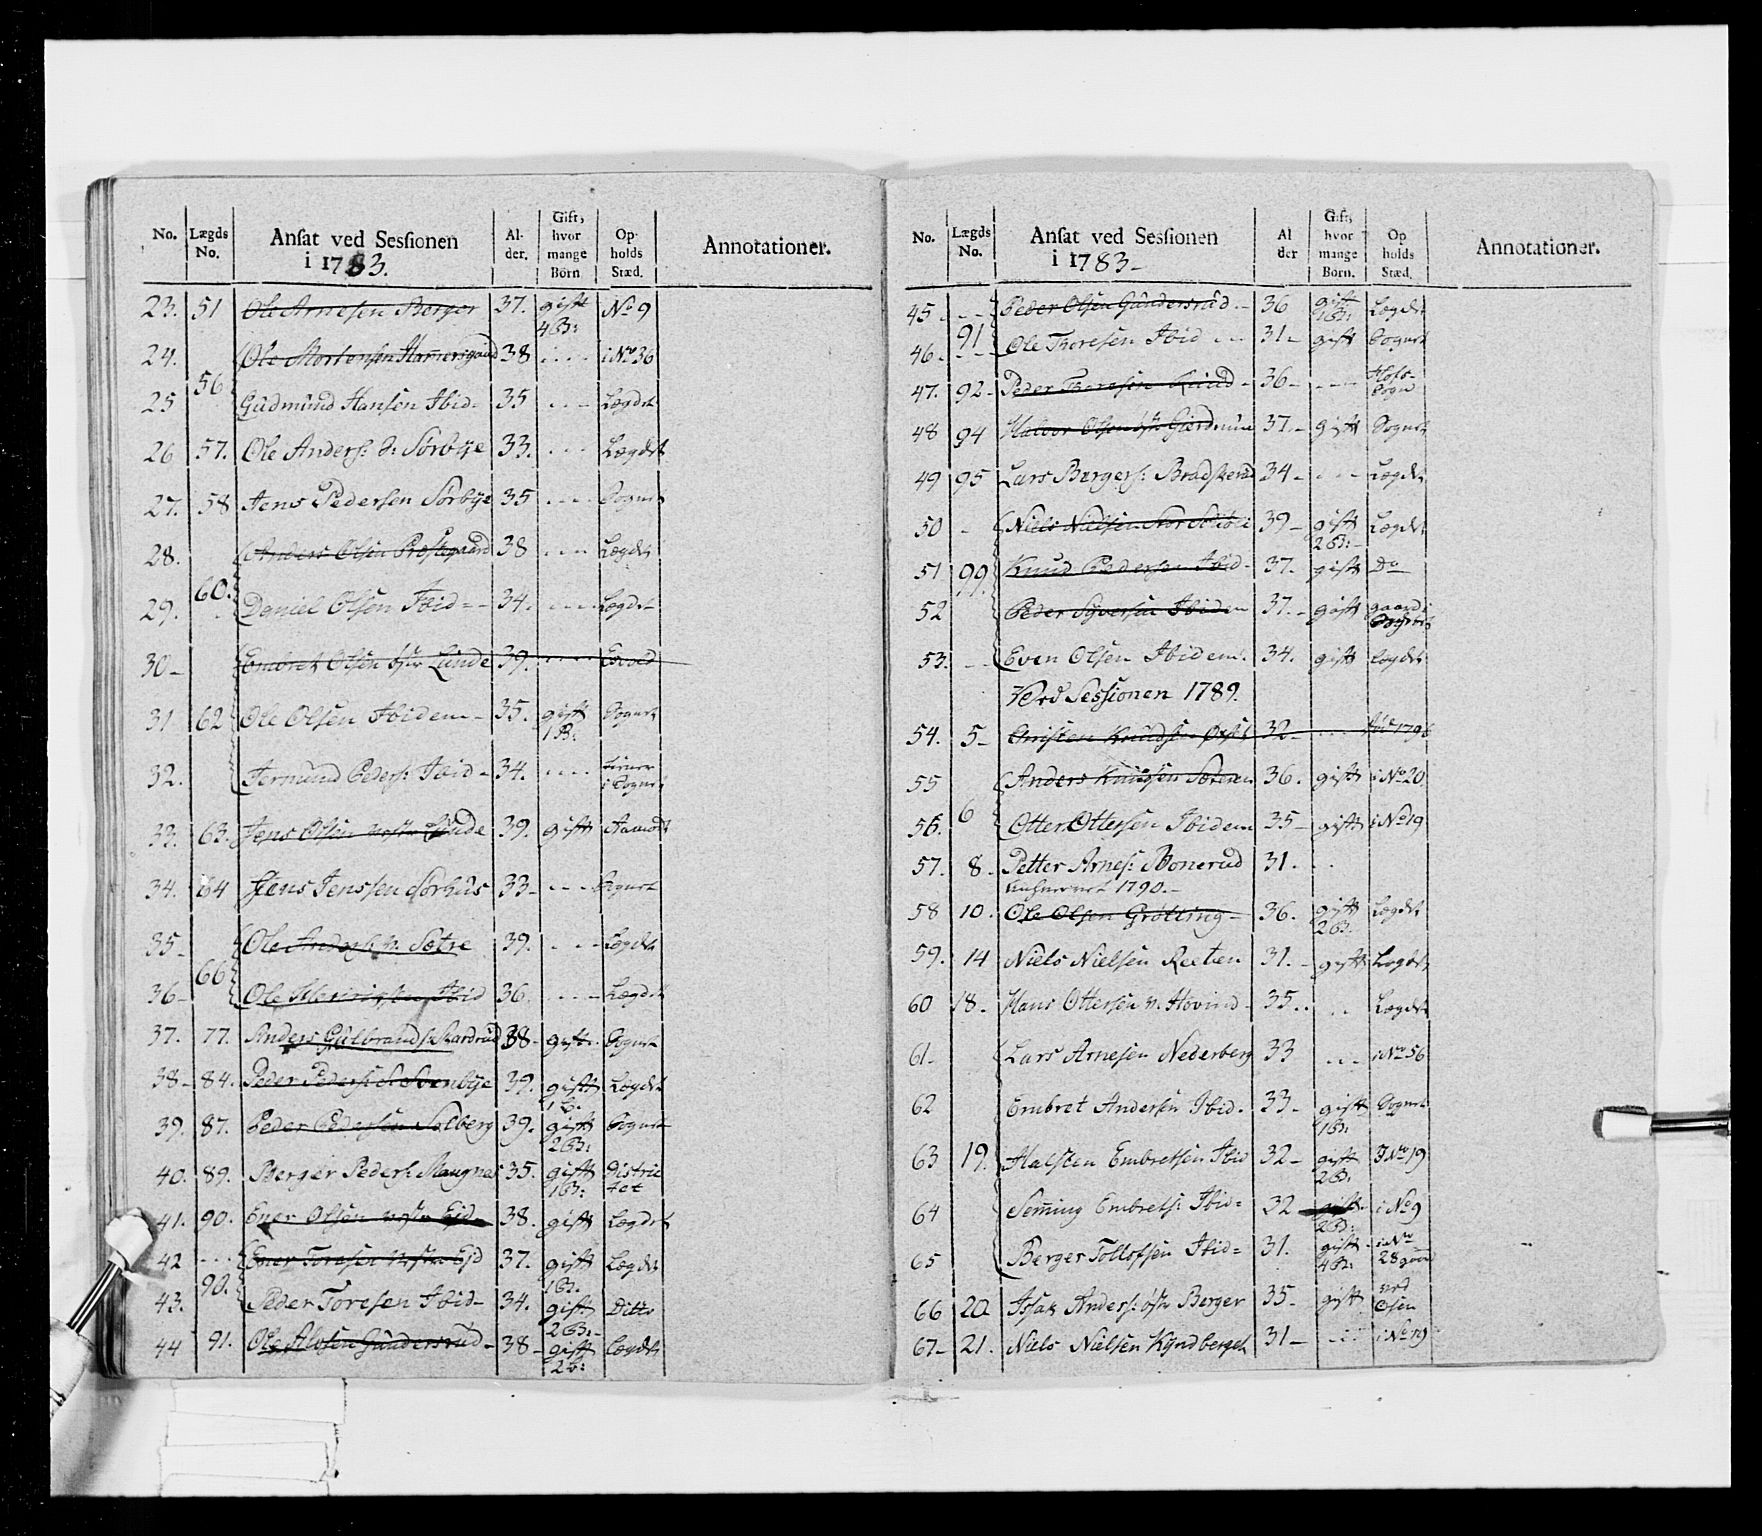 No. Lægds No. Ansat ved Sessionen i 1783. Al- der. Gift, hvor mange Börn Op- holds Stæd. Annotationer.
23. 51 Ole Arnesen Berger 37. gift 4 B: No 9
24. Ole Mortensen 38 .... i No 36
56
25 Gudmund Hansen Ibid- 35 ... Lægdet
26 57. Ole Anders: S: Sørbye 33. ... Lægdet
27. 58 Jens Pedersen Sørbye 35 .... Sognet
28. Anders Olsen Præstegaard 38 .... Lægdet
60.
29. Daniel Olsen Ibid - 34. .... Lægdet
30- Embret Olsen østr Lunde 39. ....
31 62 Ole Olsen Ibidem- 35. gift 1 B: Sognet
32. Peders: Ibid- 34. .... i Sognet
33. 63. Jens Olsen vestr Lunde 39. gift Aamodt
34. 64 Jens Jenssen Sorhus 33- .... Sognet
35- Ole Anders: v: Sætre 39. .... Lægdet
66
36- Ole Ibid 36. .... Lægdet
37. 77. Anders Gulbrands: 38- gift. Sognet
38- 84. Peder Peders: 39. gift 1 B. Lægdet
39. 87. Peder Pedersen Solberg 39. gift 2 B: Sognet
40. 89. Berger Peders: Maugnas 35. gift 1 B: Distric tet
41. 90. Ener Olsen vestr Ejd- 38. gift Lægdet
42 ... Ener Toresen vestre Ejd 37. gift 1 B. Lægdet
90.
43. Peder Toresen Ibid- 34. gift 2 B:- Ditto
44 91. Ole Gundersrud- 38- gift 2 b: Lægdet
No. Lægds No. Ansat ved Sessionen i 1783- Al der Gift, hvor mange Börn. Op holds Stæd. Annotationer.
45- Peder Olsen Gundersrud- 36 gift 1 B: Lægdet
91
46- Ole Toresen Ibid 31- gift Sognet
47. 92- Peder Toresen 36- ... Sogn
48 94 Halvor Olsen østr 37- gift Sognet
49 95 Lars Bergers: 34- ... Lægdet
50 - Niels Nielsen 39- gift 2 B:- Lægdet
51 99 Knud Pedersen Ibid- 37. gift Do
52 Peder Syversen Ibidem 37.- gift
53. Even Olsen Ibidem. 34. gift Lægdet
Ved Sessionen 1789.
54. 5- Christen Knudsen 32- ...
55 Anders Knudsen 36. gift i No 20
6
56. Otter Ottersen Ibidem 35- gift i No 19
57. 8- Petter Arnes: Bonerud 31. ..
1790.-
58 10. Ole Olsen Grøtting- 36. gift 2 B: Lægdet
59. 14 Niels Nielsen 31.- gift Lægdet
60 18. Hans Ottersen v. Hovind- 35.. .. Lægdet
61- Lars Arnesen Nederberg 33 ... i No 56
62 Embret Andersen Ibid. 33- gift 1 B: Sognet
63 19. Halsten Embretsen Ibid 32- gift 2 B: I No 19
64 Seming Embrets: Ibid= 32 gift 2 B: i No 9
65 Berger Tollofsen Ibid= 31. gift 4 B: i No 28
66 20. Isak Anders: østr Berger 35- gift ved Osen
67- 21. Niels Nielsen Kyndberget 31- ... i No 19